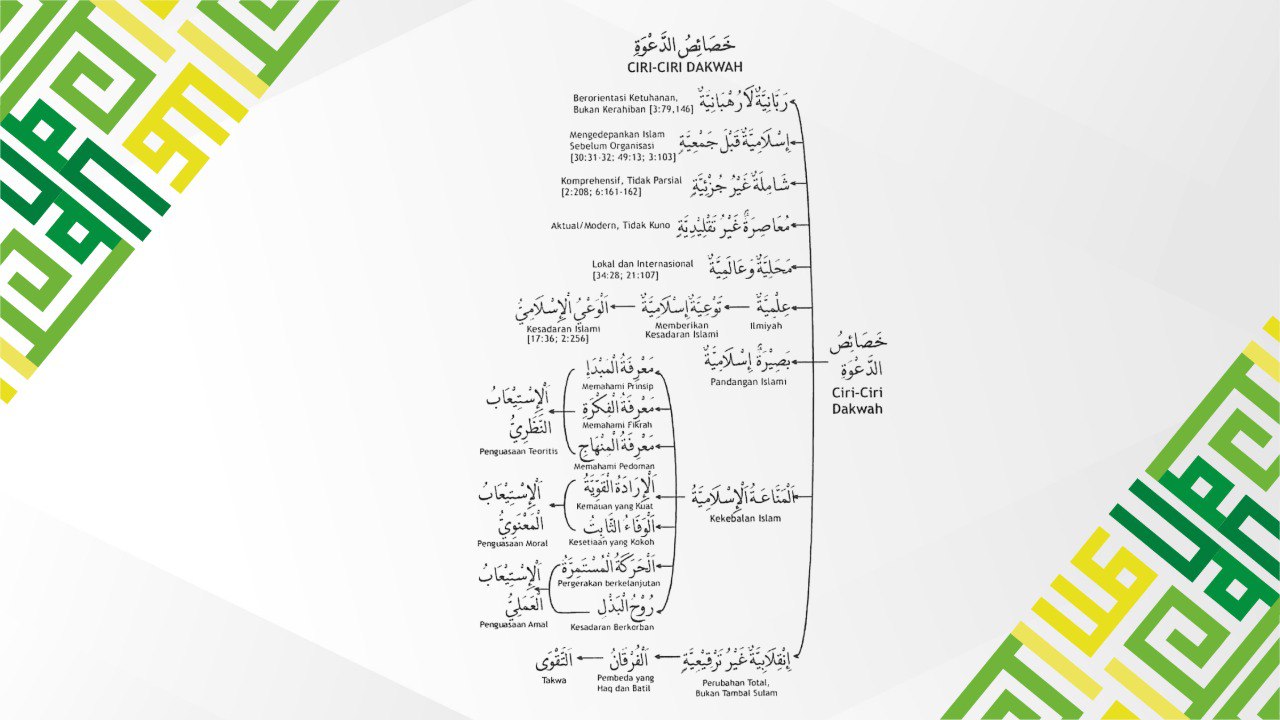 خَصَائِصُ الدَّعْوَةِ
CIRI-CIRI DAKWAH
رَبَّانِيَّةٌ لَا رُهْبَانِيَّةٌ
Berorientasi Ketuhanan,
Bukan Kerahiban [3:79,146]
إِسْلَامِيَّةٌ قَبْلَ جَمْعِيَّةٍ
Mengedepankan Islam
Sebelum Organisasi
[30:31-32; 49:13; 3:103]
شَامِلَةٌ غَيْرُ جُزْئِيَّةٍ
Komprehensif, Tidak Parsial
[2:208; 6:161-162]
مُعَاصِرَةٌ غَيْرُ تَقْلِيْدِيَّةٍ
Aktual/Modern, Tidak Kuno
مَحَلِيَّةٌ وَعَالَمِيَّةٌ
Lokal dan Internasional
[34:28; 21:107]
عِلْمِيَّةٌ
Ilmiyah
تَوْعِيَةٌ إِسْلَامِيَّةٌ
Memberikan
Kesadaran Islami
اَلْوَعْيُ الْإِسْلَامِيُّ
Kesadaran Islami
[17:36; 2:256]
خَصَائِصُ
الدَّعْوَةِ
Ciri-Ciri
Dakwah
بَصِيْرَةٌ إِسْلَامِيَّةٌ
Pandangan Islami
اَلْمَنَاعَةُ الْإِسْلَامِيَّةُ
Kekebalan Islam
مَعْرِفَةُ الْمَبْدَإِ
Memahami Prinsip
مَعْرِفَةُ الْفِكْرَةِ
Memahami Fikrah
مَعْرِفَةُ الْمِنْهَاجِ
Memahami Pedoman
اَلْإِسْتِيْعَابُ
النَّظَرِيُّ
Penguasaan Teoritis
اَلْإِرَادَةُ الْقَوِيَّةُ
Kemauan yang Kuat
اَلْوَفَاءُ الثَّابِتُ
Kesetiaan yang Kokoh
اَلْإِسْتِيْعَابُ
الْمَعْنَوِيُّ
Penguasaan Moral
اَلْحَرَكَةُ الْمُسْتَمِرَّةُ
Pergerakan berkelanjutan
رُوْحُ الْبَذْلِ
Kesadaran Berkorban
اَلْإِسْتِيْعَابُ
الْعَمَلِيُّ
Penguasaan Amal
إِنْقِلَابِيَّةٌ غَيْرُ تَرْقِيْعِيَّةٍ
Perubahan Total,
Bukan Tambal Sulam
اَلْفُرْقَانُ
Pembeda yang
Haq dan Batil
اَلتَّقْوَى
Takwa